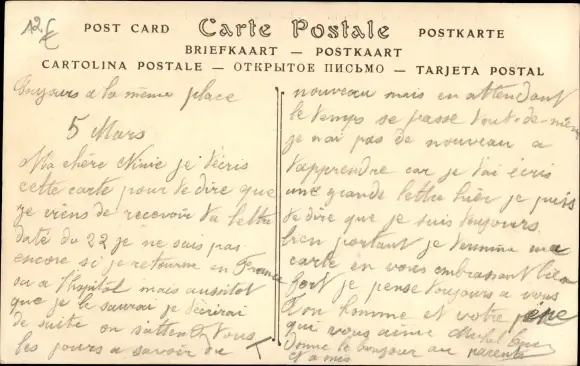 12€
POST CARD Carte Postale POSTKARTE
BRIEFKAART — POSTKAART
CARTOLINA POSTALE — ОТКРЫТОЕ ПИСЬМО — TARJETA POSTAL
Toujours a la même place
5 Mars
Ma chère Ninie je t'écris
cette carte pour te dire que
je viens de recevoir ta lettre
daté du 22 je ne sais pas
encore si je retourne en France
ou a l'hopital mais aussitot
que je le saurai je t'écrirai
de suite on s'attent tous
les jours a savoir du
nouveau mais en attendant
le temps se passe tout-de-même
je n'ai pas de nouveau a
t'apprendre car je t'ai écris
une grande lettre hier je puis
te dire que je suis toujours
bien portant je termine ma
carte en vous embrassant bien
fort je pense toujours a vous
Ton homme et votre père
qui vous aime Michel
Donne le bonjour au parents
et amis